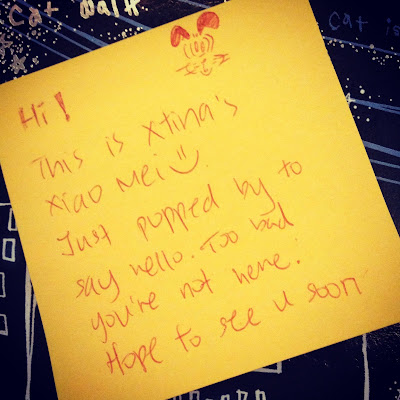 Cat Walk
Cat is
Hi!
This is Xtina's
Xiao Mei
Just popped by to
say hello. Too bad
you're not here.
Hope to see u soon